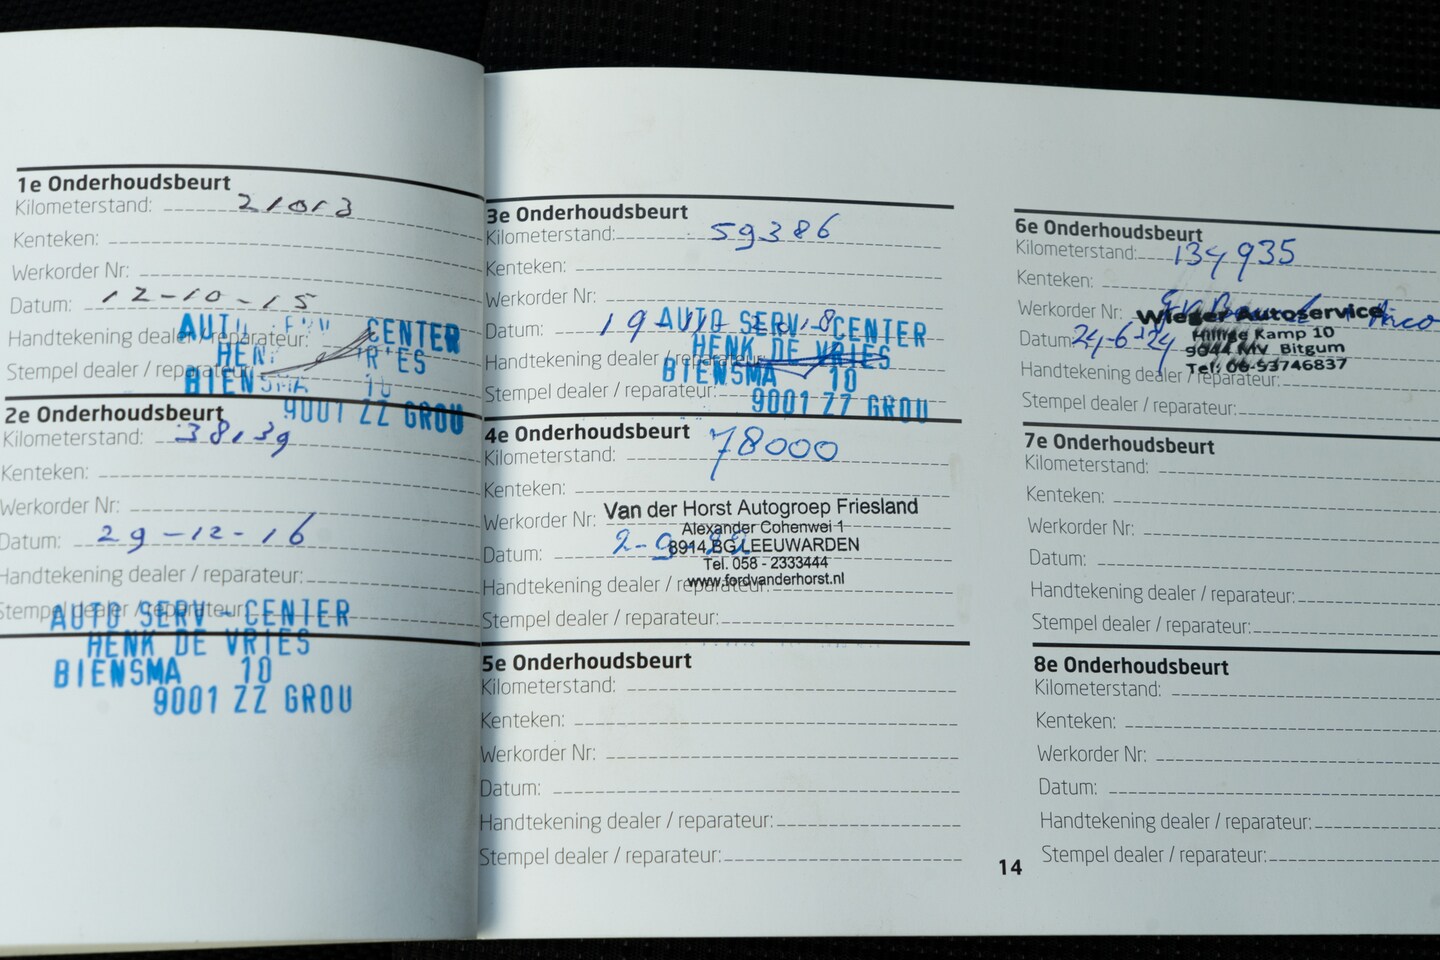 1e Onderhoudsbeurt
Kilometerstand: 21013
Kenteken:
Werkorder Nr:
Datum: 12-10-15
Handtekening dealer / reparateur:
Stempel dealer / reparateur:
AUTO SERV CENTER
HENK DE VRIES
BIENSMA 10
9001 ZZ GROU
2e Onderhoudsbeurt
Kilometerstand: 38139
Kenteken:
Werkorder Nr:
Datum: 29-12-16
Handtekening dealer / reparateur:
Stempel dealer / reparateur:
AUTO SERV - CENTER
HENK DE VRIES
BIENSMA 10
9001 ZZ GROU
3e Onderhoudsbeurt
Kilometerstand: 59386
Kenteken:
Werkorder Nr:
Datum: 19
Handtekening dealer / reparateur:
Stempel dealer / reparateur:
AUTO SERV - CENTER
HENK DE VRIES
BIENSMA 10
9001 ZZ GROU
4e Onderhoudsbeurt
Kilometerstand: 78000
Kenteken:
Werkorder Nr:
Datum: 2-9-22
Handtekening dealer / reparateur:
Stempel dealer / reparateur:
Van der Horst Autogroep Friesland
Alexander Cohenwei 1
8914 BG LEEUWARDEN
Tel. 058 - 2333444
www.fordvanderhorst.nl
5e Onderhoudsbeurt
Kilometerstand:
Kenteken:
Werkorder Nr:
Datum:
Handtekening dealer / reparateur:
Stempel dealer / reparateur:
14
6e Onderhoudsbeurt
Kilometerstand: 134935
Kenteken:
Werkorder Nr:
Datum: 24-6-24
Handtekening dealer / reparateur:
Stempel dealer / reparateur:
Wieger Autoservice
Hillige Kamp 10
9044 MV Bitgum
Tel: 06-53746837
7e Onderhoudsbeurt
Kilometerstand:
Kenteken:
Werkorder Nr:
Datum:
Handtekening dealer / reparateur:
Stempel dealer / reparateur:
8e Onderhoudsbeurt
Kilometerstand:
Kenteken:
Werkorder Nr:
Datum:
Handtekening dealer / reparateur:
Stempel dealer / reparateur: